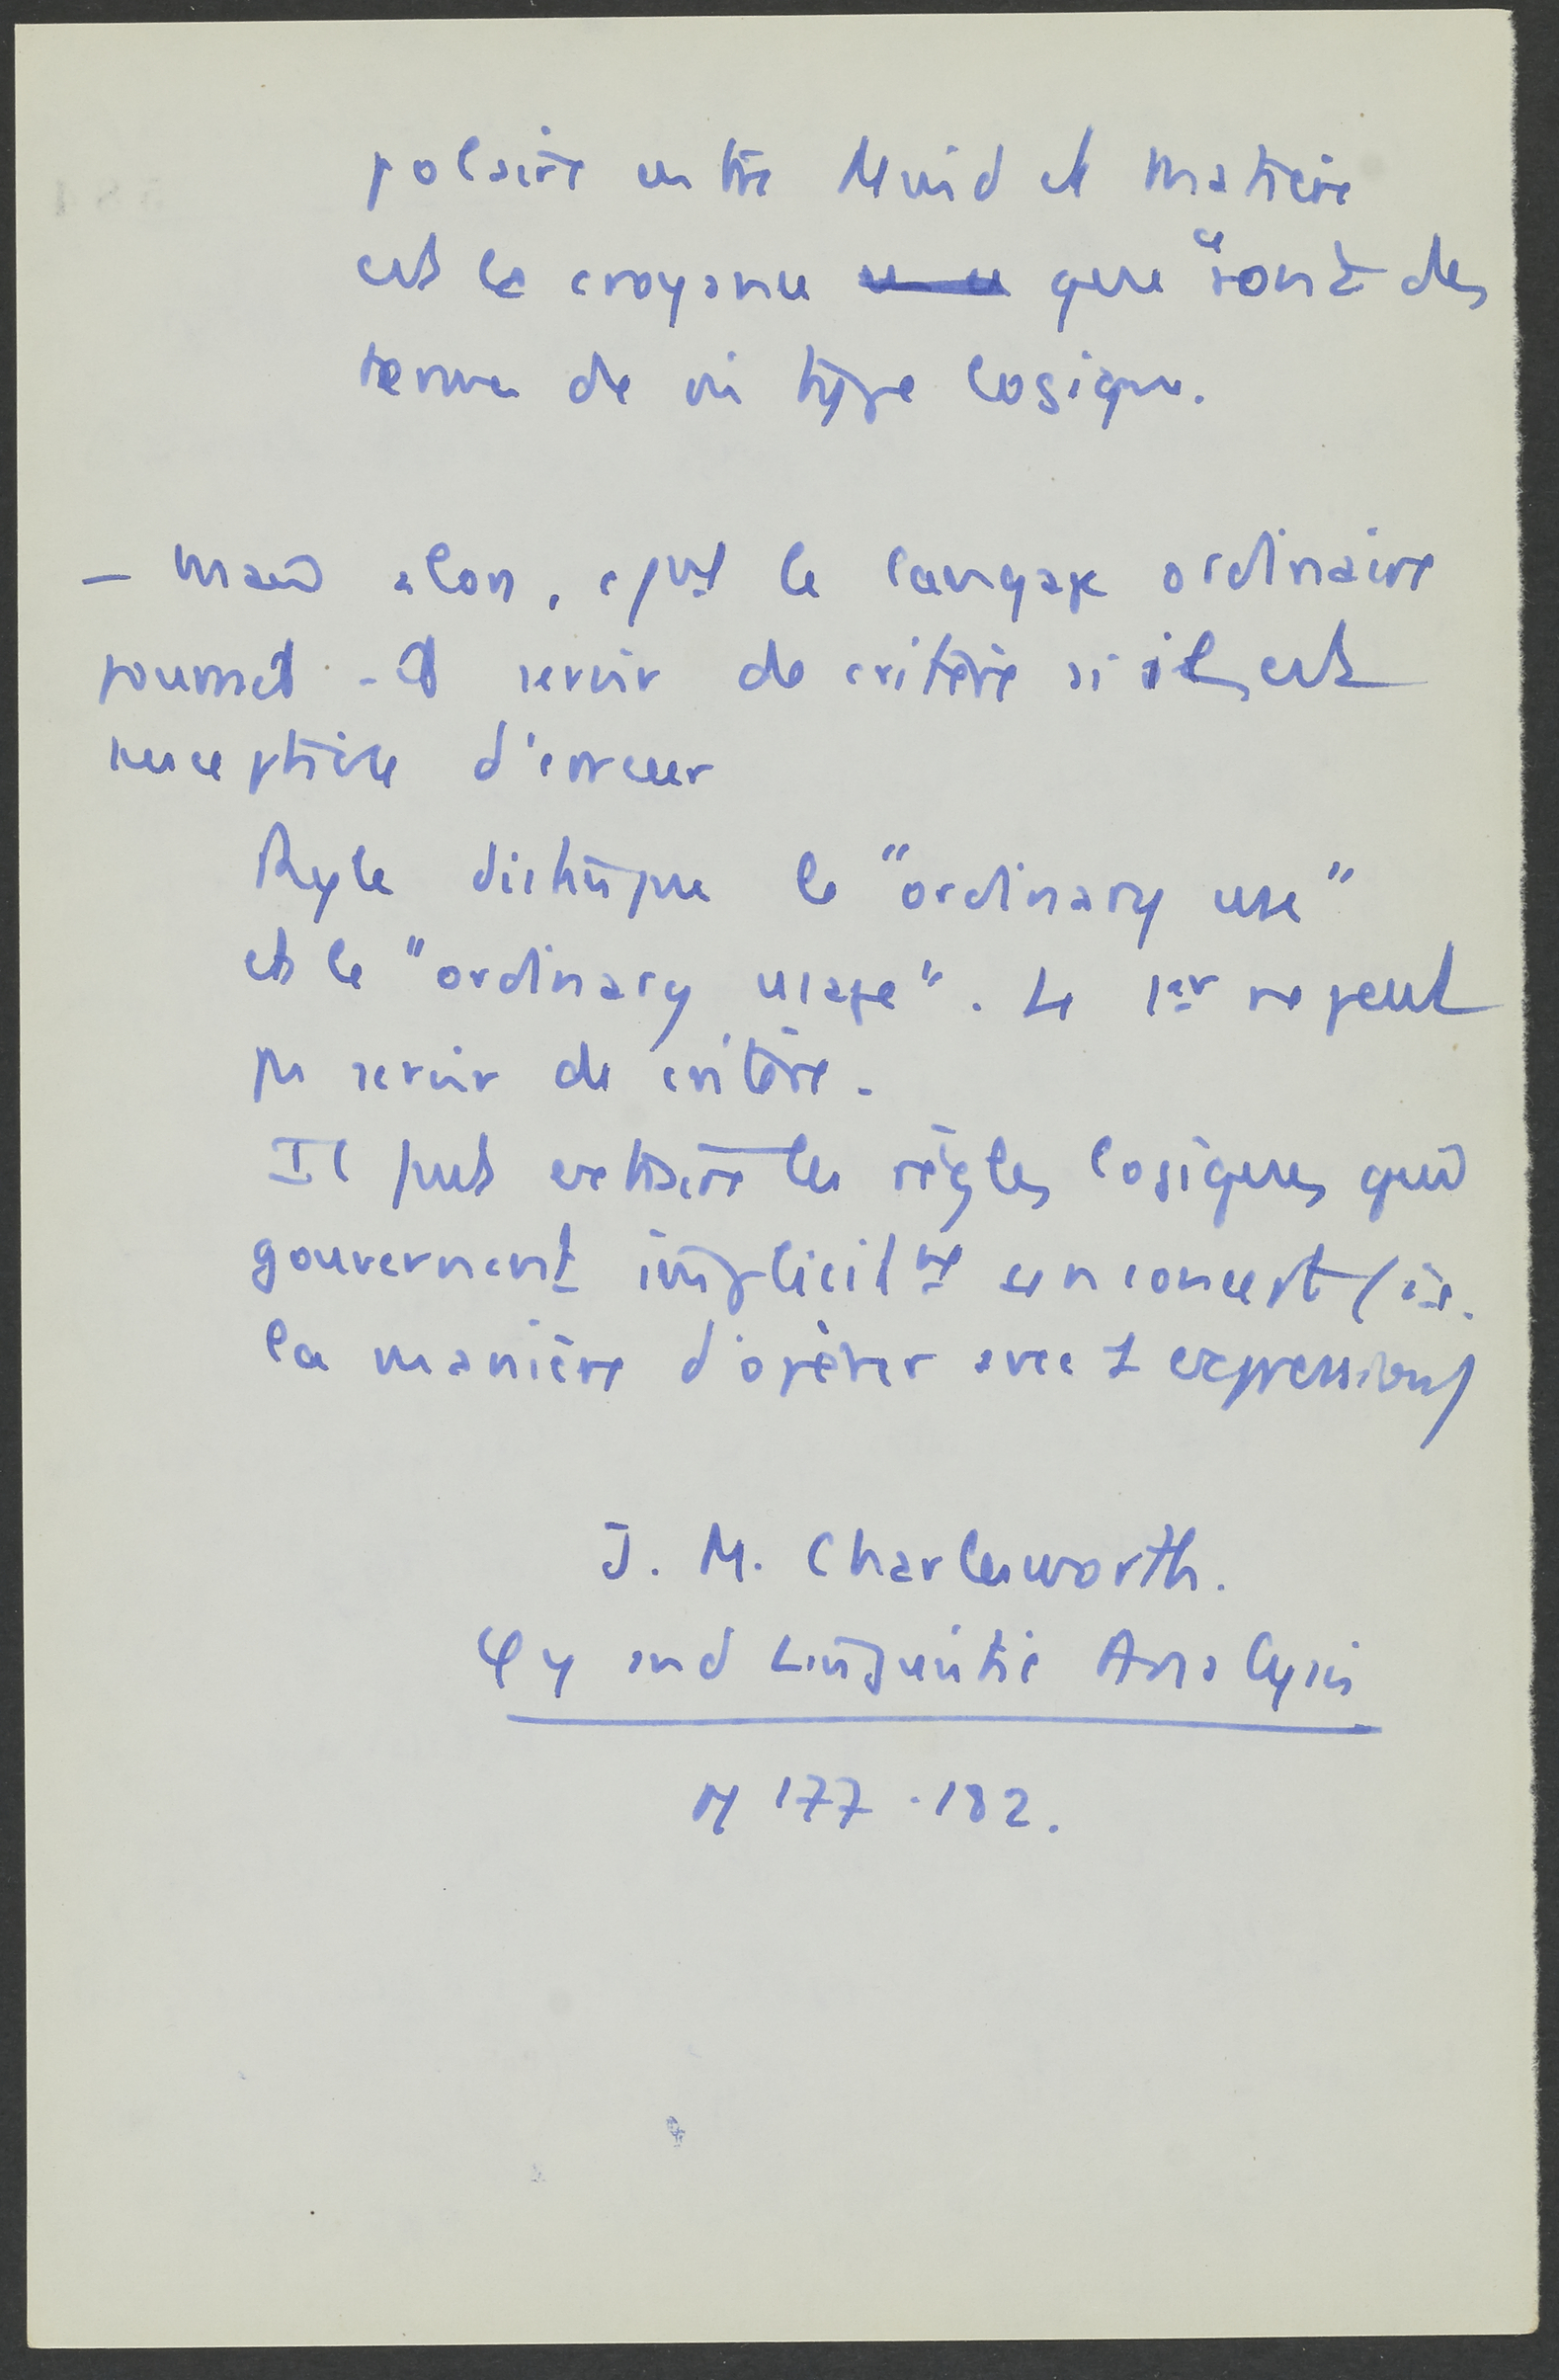 polaire entre Mind et matière
est la croyance que ce sont des
termes de mi type logique.
– mais alors, cput le langage ordinaire
pourrait-il servir de critère si il est
susceptible d'erreur
Ryle distingue le "ordinary use"
et le "ordinary usage". Le 1er ne peut
pas servir de critère.
Il faut extraire les règles logiques qui
gouvernent implicitmt un concept (i.e.
la manière d'opérer avec 1 expression)
J. M. Charlesworth.
φy and Linguistic Analysis
pp 177-182.